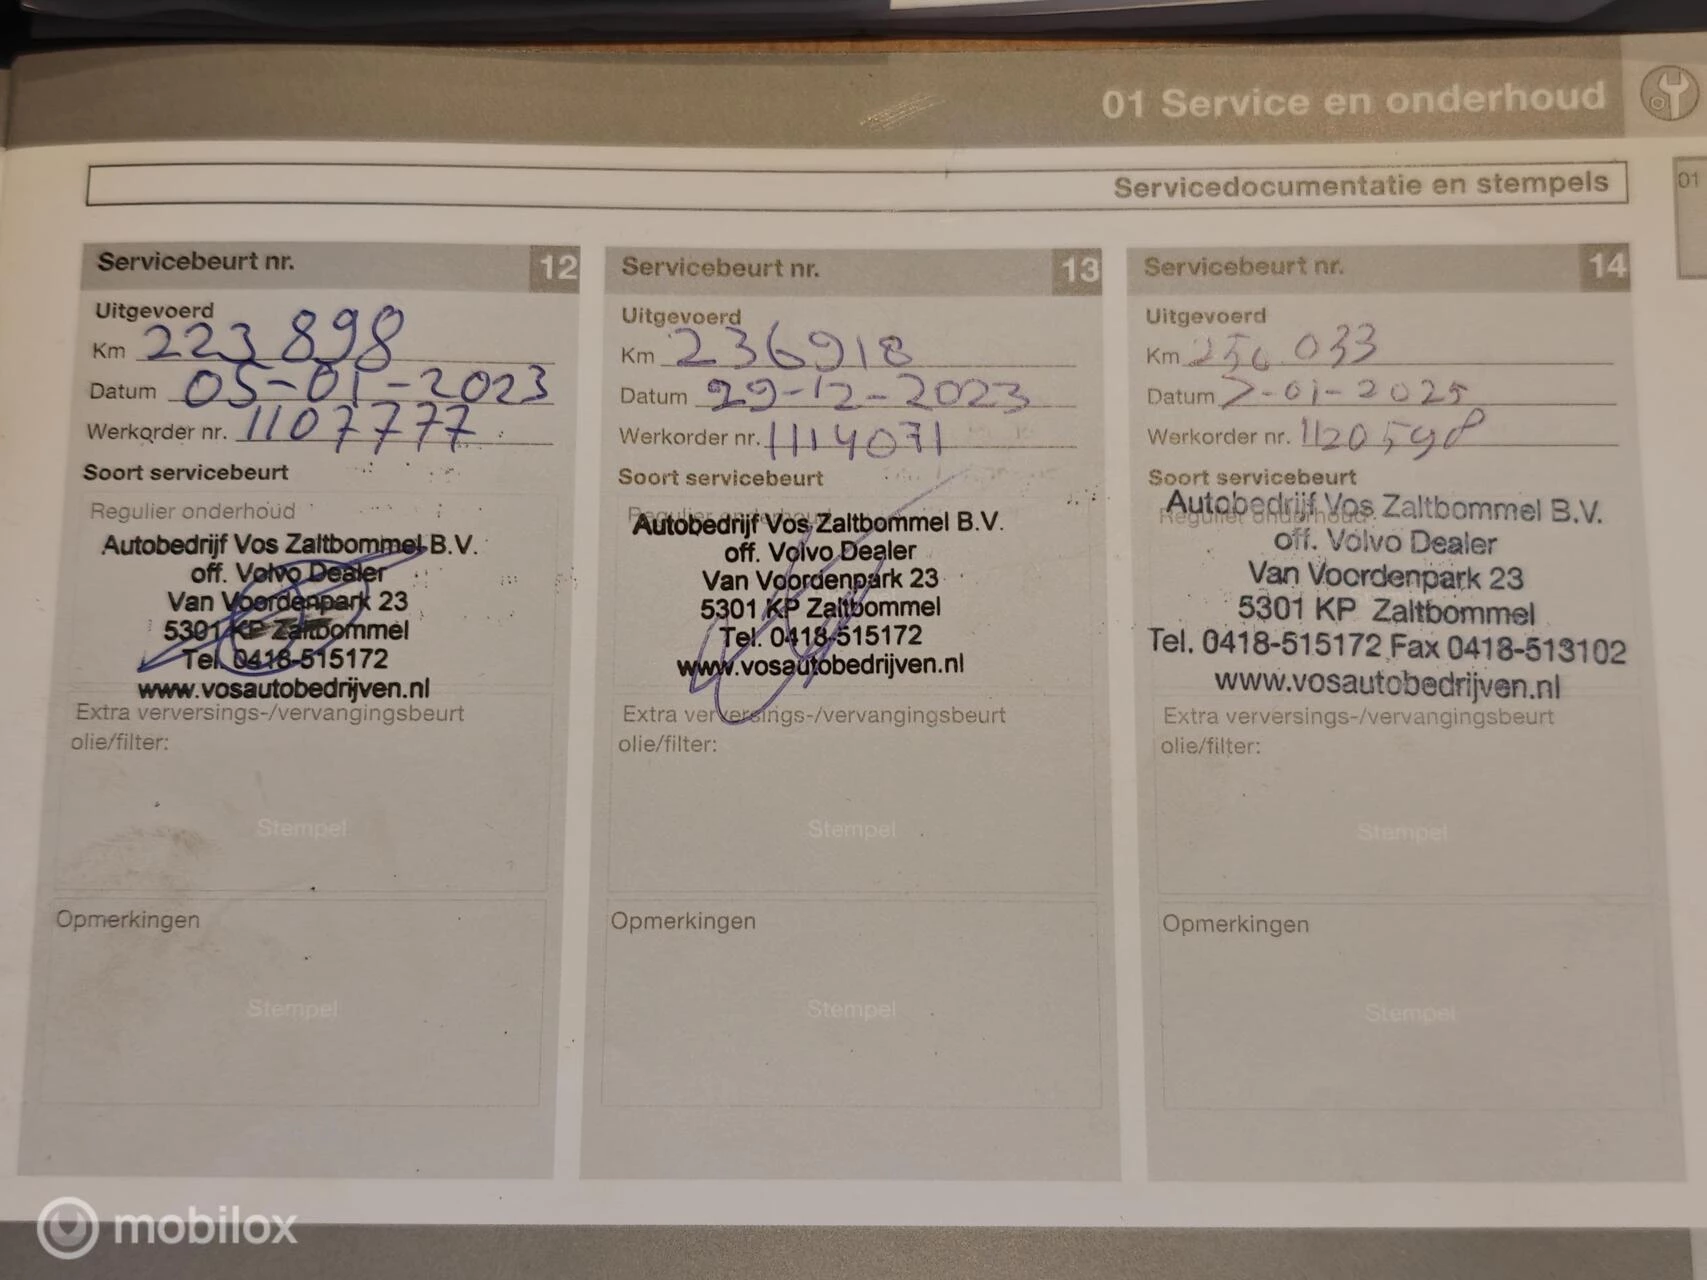 01 Service en onderhoud
Servicedocumentatie en stempels
01
Servicebeurt nr. 12
Uitgevoerd
Km 223 898
Datum 05-01-2023
Werkorder nr. 1107777
Soort servicebeurt
Regulier onderhoud
Autobedrijf Vos Zaltbommel B.V.
off. Volvo Dealer
Van Voordenpark 23
5301 KP Zaltbommel
Tel. 0418-515172
www.vosautobedrijven.nl
Extra verversings-/vervangingsbeurt
olie/filter:
Stempel
Opmerkingen
Stempel
Servicebeurt nr. 13
Uitgevoerd
Km 236918
Datum 29-12-2023
Werkorder nr. 1114071
Soort servicebeurt
Regulier onderhoud
Autobedrijf Vos Zaltbommel B.V.
off. Volvo Dealer
Van Voordenpark 23
5301 KP Zaltbommel
Tel. 0418-515172
www.vosautobedrijven.nl
Extra verversings-/vervangingsbeurt
olie/filter:
Stempel
Opmerkingen
Stempel
Servicebeurt nr. 14
Uitgevoerd
Km 256.033
Datum 7-01-2025
Werkorder nr. 1120598
Soort servicebeurt
Regulier onderhoud
Autobedrijf Vos Zaltbommel B.V.
off. Volvo Dealer
Van Voordenpark 23
5301 KP Zaltbommel
Tel. 0418-515172 Fax 0418-513102
www.vosautobedrijven.nl
Extra verversings-/vervangingsbeurt
olie/filter:
Stempel
Opmerkingen
Stempel
mobilox